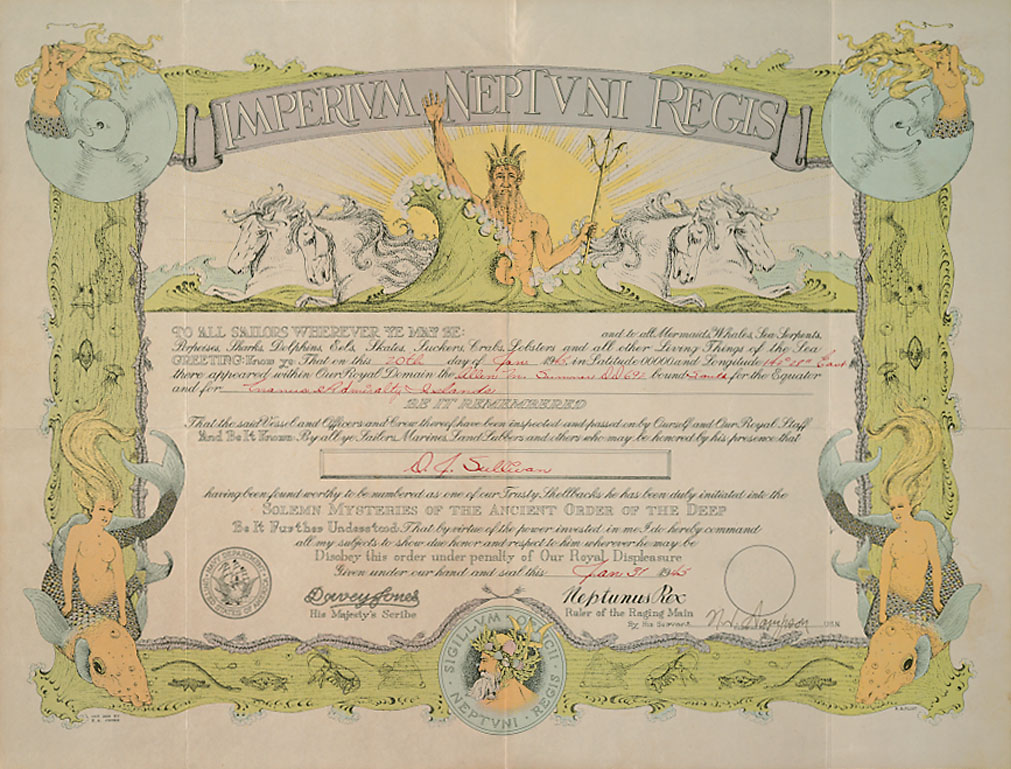 IMPERIVM NEPTVNI REGIS
TO ALL SAILORS WHEREVER YE MAY BE: and to all Mermaids, Whales, Sea Serpents,
Porpoises, Sharks, Dolphins, Eels, Skates, Suckers, Crabs, Lobsters and all other Living Things of the Sea
GREETING: Know ye: That on this 20th day of Jan 1945 in Latitude 00000 and Longitude East
there appeared within Our Royal Domain the Allen M. Sumner DD692 bound South for the Equator
and for Manus Admiralty Islands
BE IT REMEMBERED
That the said Vessel and Officers and Crew thereof have been inspected and passed on by Ourself and Our Royal Staff
And Be It Known: By all ye Sailors, Marines, Land Lubbers and others who may be honored by his presence that
D. J. Sullivan
having been found worthy to be numbered as one of our Trusty Shellbacks he has been duly initiated into the
SOLEMN MYSTERIES OF THE ANCIENT ORDER OF THE DEEP
Be It Further Understood: That by virtue of the power invested in me I do hereby command
all my subjects to show due honor and respect to him wherever he may be
Disobey this order under penalty of Our Royal Displeasure
Given under our hand and seal this Jan 31 1945
NAVY DEPARTMENT
UNITED STATES OF AMERICA
Davey Jones
His Majesty's Scribe
Neptunus Rex
Ruler of the Raging Main
By His Servant N. J. Sampson USN
SIGILLVM
NEPTVNI REGIS